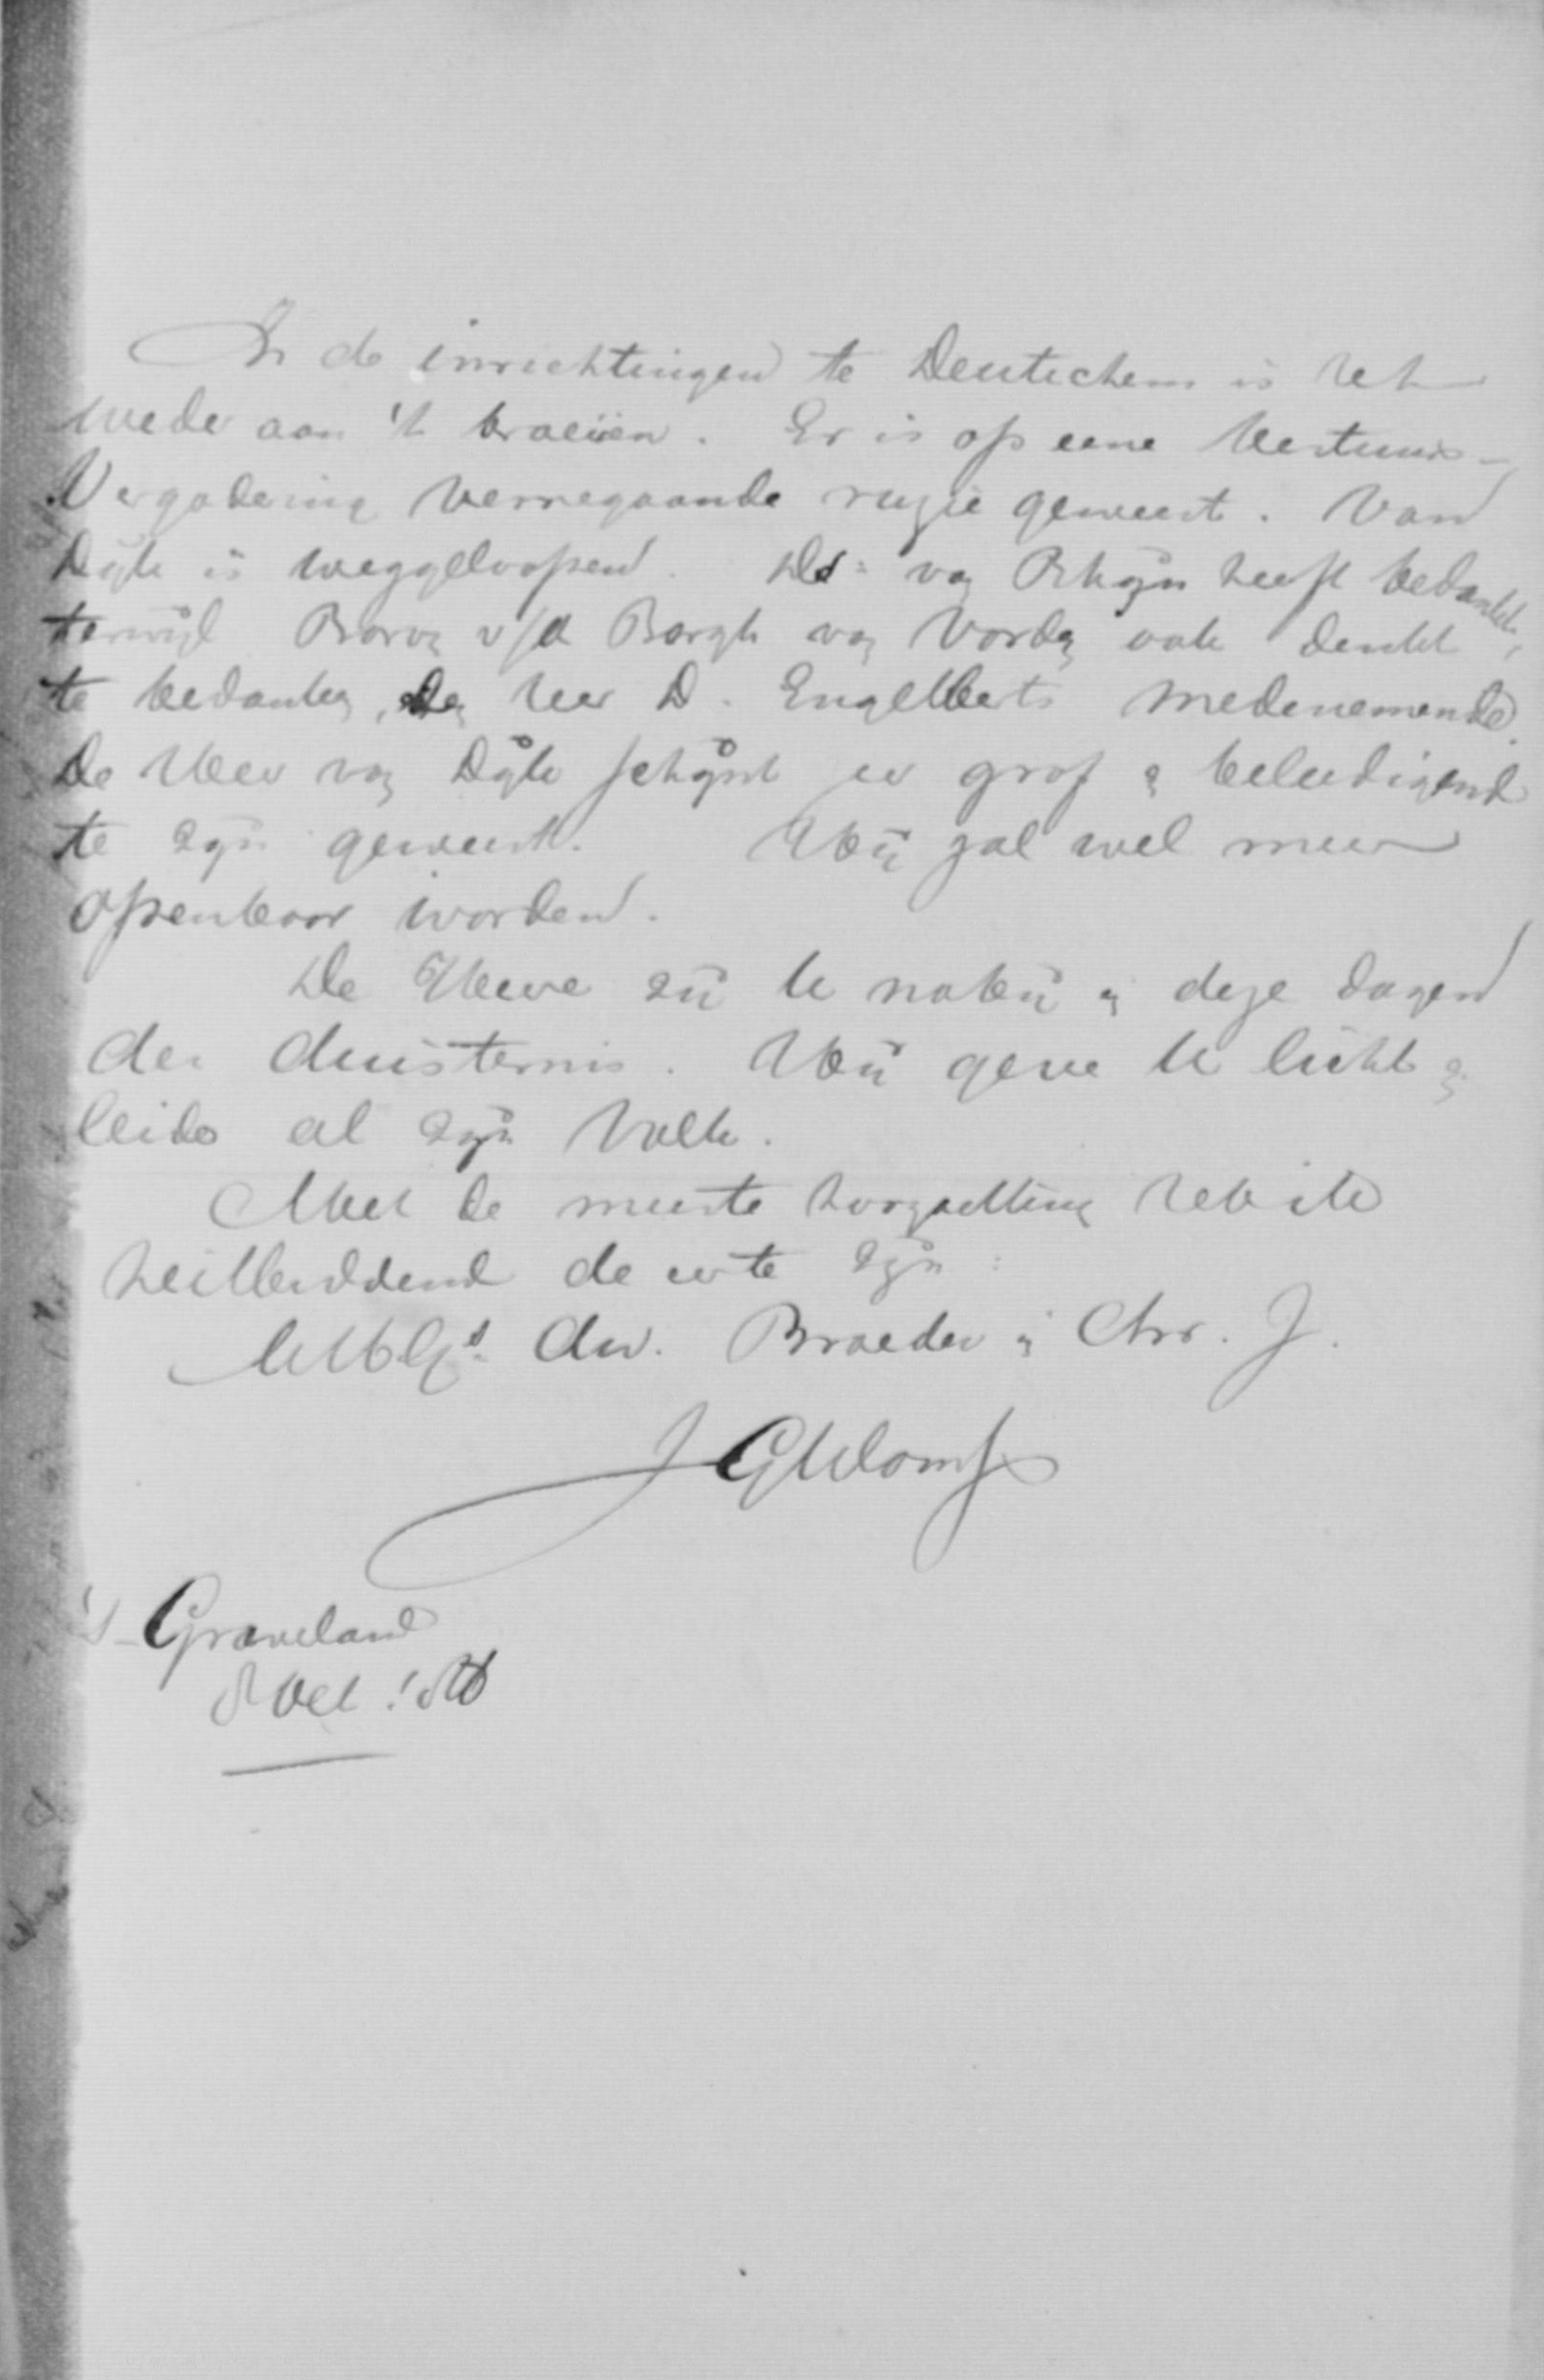 In de inrichtingen te Deutichem is het
weder aan 't broeiën. Er is op eene Bestuurs-
Vergadering verregaande ruzie geweest. Van
Dijk is weggeloopen. Ds. van Rhijn heeft bedankt,
terwijl Baron v/d Borgh van Vorden ook denkt
te bedanken, den heer D. Engelberts medenemende.
De Heer van Dijk schijnt er grof en beleedigend
te zijn geweest. Hij zal wel meer
openbaar worden.
De Heere zij U nabij in deze dagen
der duisternis. Hij geve U licht en
leide al zijn Volk.
Met de meeste hoogachting heb ik
heilbiddend de eer te zijn:
UWelG. dw. Broeder in Chr. J.
's-Graveland
8 Oct.